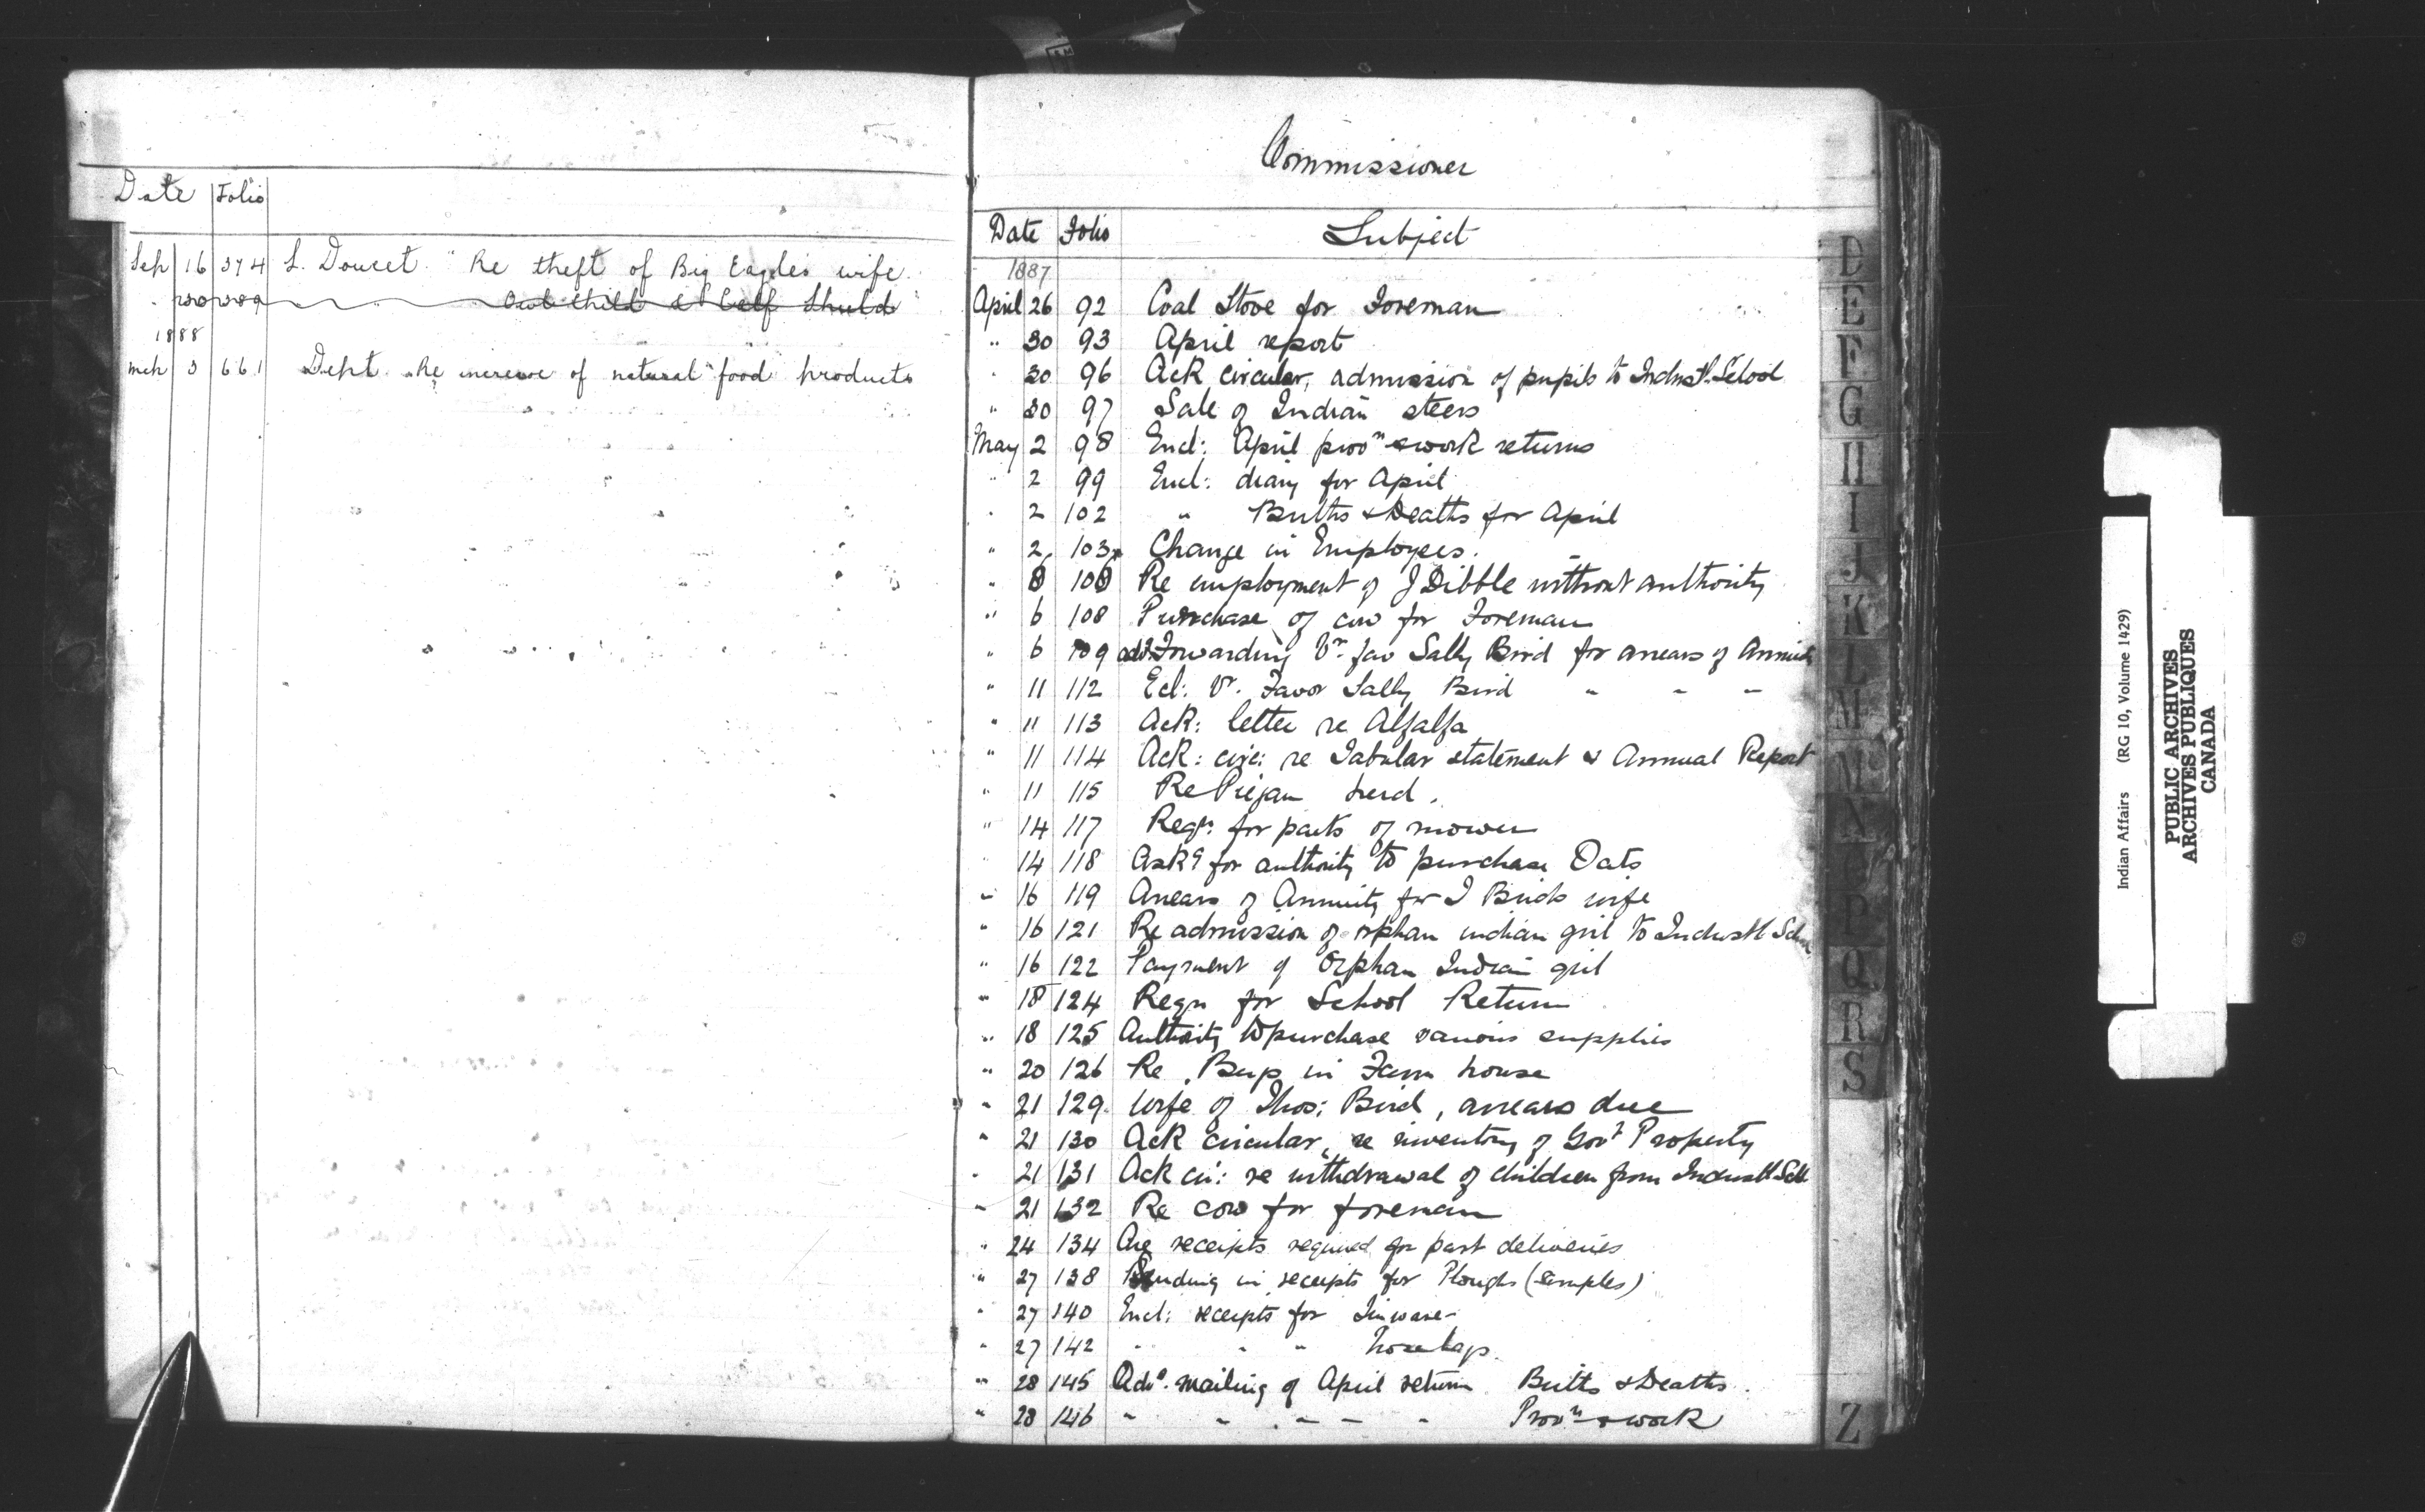 Date Folio
Sep 16 374 L. Doucet. "Re theft of Big Eagles wife.
" 20 389 Owl Child & Calf Shield
1888
Mch 3 661 Dept. Re increase of natural food products
Commissioner
Date Folio Subject
1887
April 26 92 Coal Stove for Foreman
" 30 93 April report
" 30 96 Ack circular, admission of pupils to Indust'l School
" 30 97 Sale of Indian steers
May 2 98 Encl: April provn & work returns
" 2 99 Encl: diary for April
" 2 102 " Births & Deaths for April
" 2 103 Change in Employees.
" 8 108 Re employment of J Dibble without authority
" 6 108 Purchase of cow for Foreman
" 6 109 adv. Forwarding Vr. fav Sally Bird for arrears of Annuity
" 11 112 Ecl: Vr. Favor Sally Bird " " "
" 11 113 Ack: letter re Alfalfa
" 11 114 Ack: circ: re Tabular statement & Annual Report
" 11 115 Re Piegan herd.
" 14 117 Reqn. for parts of mower
14 118 Askg for authority to purchase Oats
" 16 119 Arrears of Annuity for T Birds wife
" 16 121 Re admission of orphan indian girl to Industl School
" 16 122 Payment of Orphan Indian girl
" 18 124 Reqn for School Return
" 18 125 Authority to purchase various supplies
" 20 126 Re in Farm house
" 21 129. Wife of Thos: Bird, arrears due
" 21 130 Ack circular, re inventory of Govt Property
" 21 131 Ack cir: re withdrawal of children from Industl Schl
" 21 132 Re cow for foreman
" 24 134 Are receipts required for past deliveries
" 27 138 Sending in receipts for Ploughs (samples)
" 27 140 Encl: receipts for Tinware
" 27 142 " " " Nosebags.
" 28 145 Advg. mailing of April return Births & Deaths.
" 28 146 " " " " " Provn & work
D
E
F
G
H
I
J
K
L
M
Mc
N
O
P
Q
R
S
Z
Indian Affairs (RG 10, Volume 1429)
PUBLIC ARCHIVES
ARCHIVES PUBLIQUES
CANADA